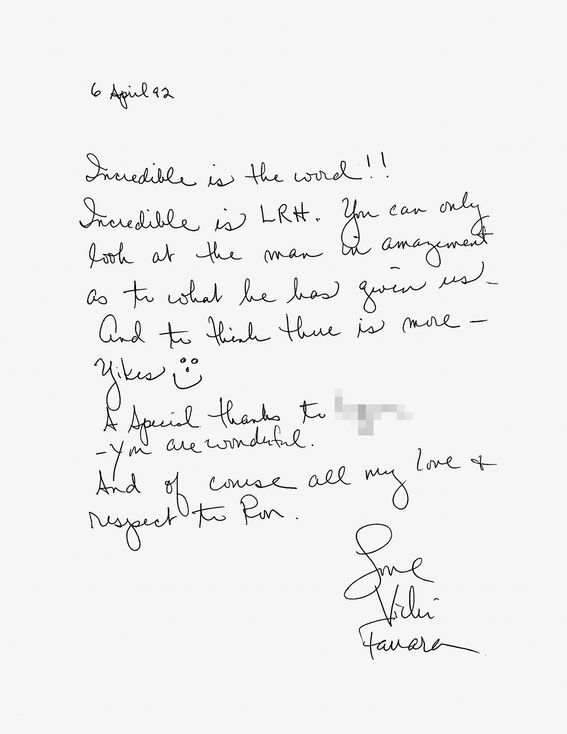 6 April 92
Incredible is the word!!
Incredible is LRH. You can only
look at the man in amazement
as to what he has given us –
And to think there is more –
Yikes
A Special thanks to
– You are wonderful.
And of course all my love &
respect to Ron.
Love
Vicki